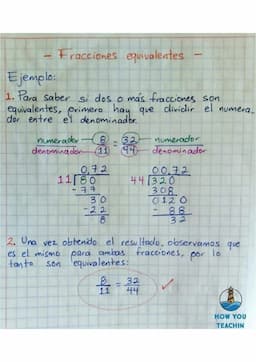 - Fracciones equivalentes -
Ejemplo:
1. Para saber si dos o más fracciones son
equivalentes, primero hay que dividir el numera_
dor entre el denominador.
numerador 8 = 32 numerador
denominador 11 44 denominador
0.72 00.72
11 80 44 320
-77 308
30 0120
-22 - 88
8 32
2. Una vez obtenido el resultado, observamos que
es el mismo para ambas fracciones, por lo
tanto son equivalentes:
8 = 32
11 44
HOW YOU
TEACHIN